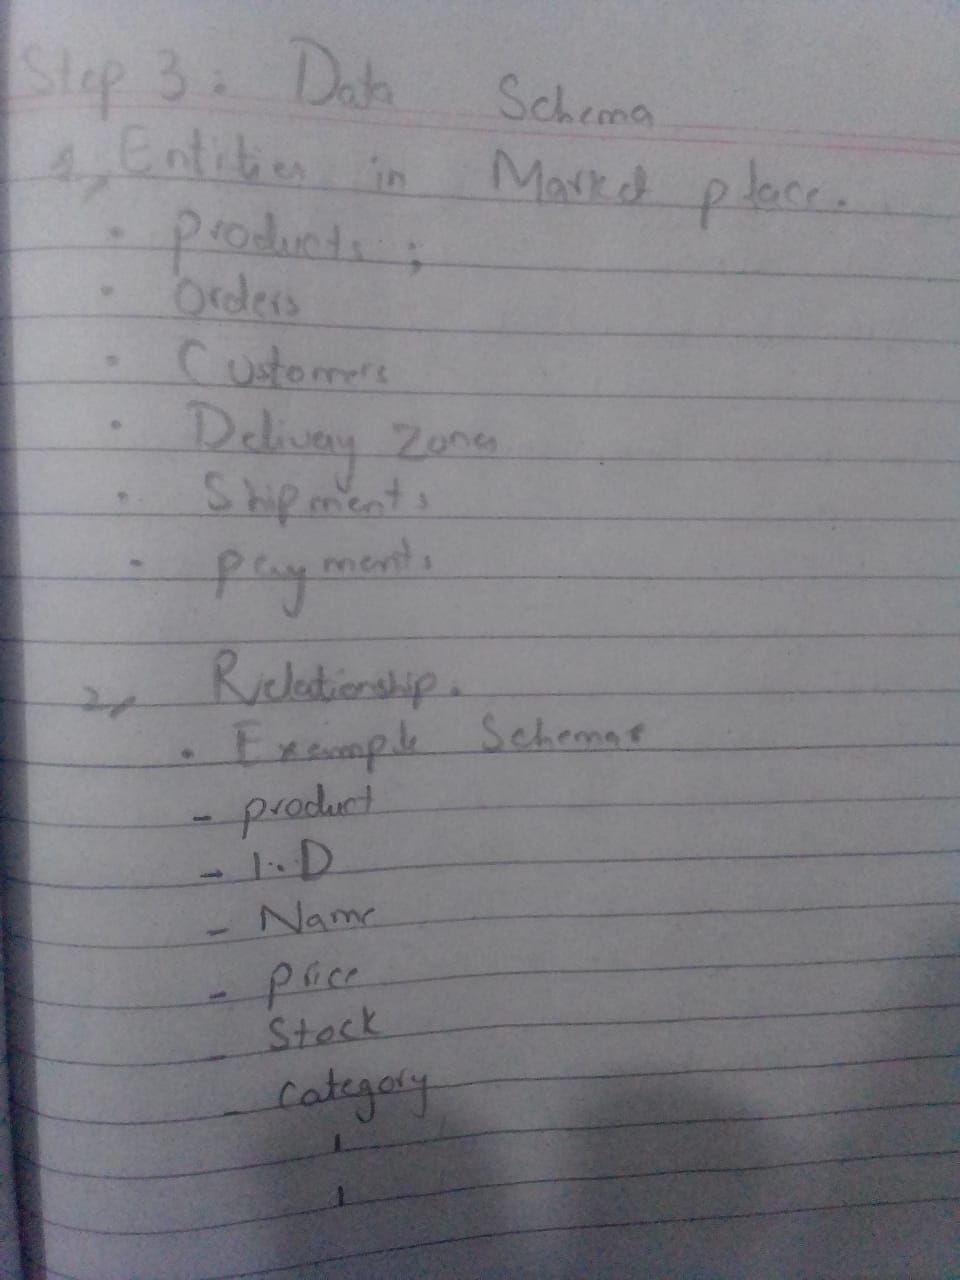 Step 3: Data Schema
1, Entities in Market place.
• Products ;
• Orders
• Customers
• Delivery Zones
• Shipments
- payments
2, Relationship.
• Example Schemas
- product
- I.D
- Name
- price
- Stock
- Category